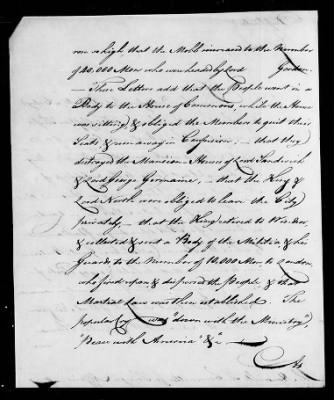 rose so high that the Mob increased to the Number
of 20,000 Men who were headed by Lord Gordon.
— These Letters add that the People went in a
Body to the House of Commons, while the House
was sitting, & obliged the Members to quit their
Seats & run away in Confusion; — that they
destroyed the Mansion Houses of Lord Sandwich
& Lord George Germaine, — that the King &
Lord North were obliged to leave the City
privately, — that the King retired to Windsor
& collected & sent a Body of the Militia & his
Guards to the Number of 10,000 Men to London
who fired upon & dispersed the People & that
Martial Law was then established. The
popular Cry was "down with the Ministry",
"Peace with America" &c —